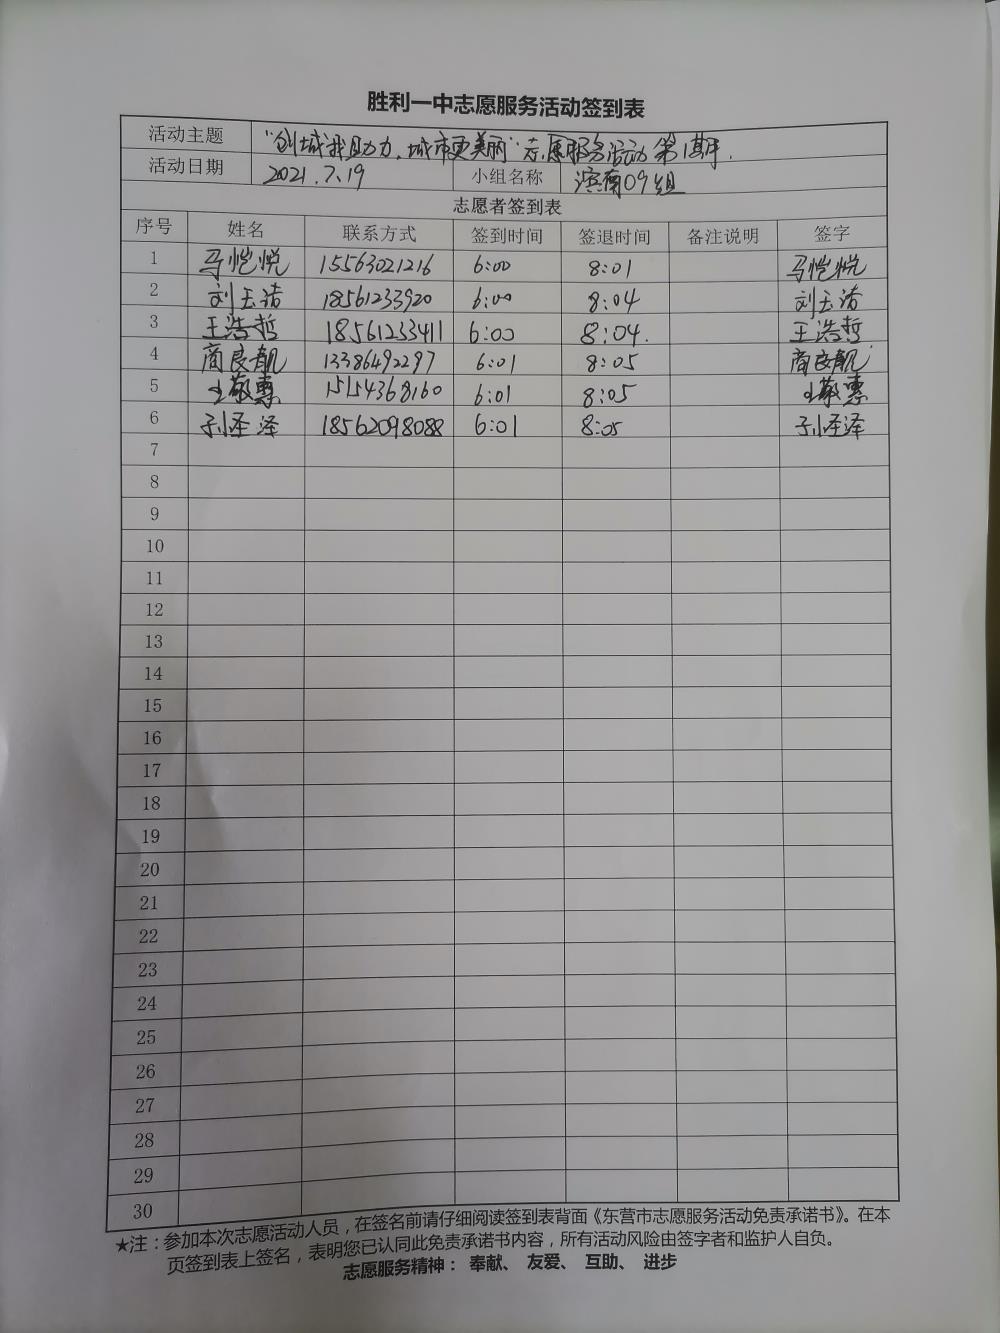 胜利一中志愿服务活动签到表
活动主题 "创城我助力,城市更美丽"志愿服务活动第1期.
活动日期 2021.7.19 小组名称 滨南09组
志愿者签到表
序号 姓名 联系方式 签到时间 签退时间 备注说明 签字
1 马恺悦 15563021216 6:00 8:01 马恺悦
2 刘玉洁 18561233920 6:00 8:04 刘玉洁
3 王浩哲 18561233411 6:00 8:04. 王浩哲
4 商良靓 13386492297 6:01 8:05 商良靓
5 15154368160 6:01 8:05
6 孙圣泽 18562098088 6:01 8:05 孙圣泽
7
8
9
10
11
12
13
14
15
16
17
18
19
20
21
22
23
24
25
26
27
28
29
30
★注:参加本次志愿活动人员,在签名前请仔细阅读签到表背面《东营市志愿服务活动免责承诺书》。在本
页签到表上签名,表明您已认同此免责承诺书内容,所有活动风险由签字者和监护人自负。
志愿服务精神: 奉献、 友爱、 互助、 进步